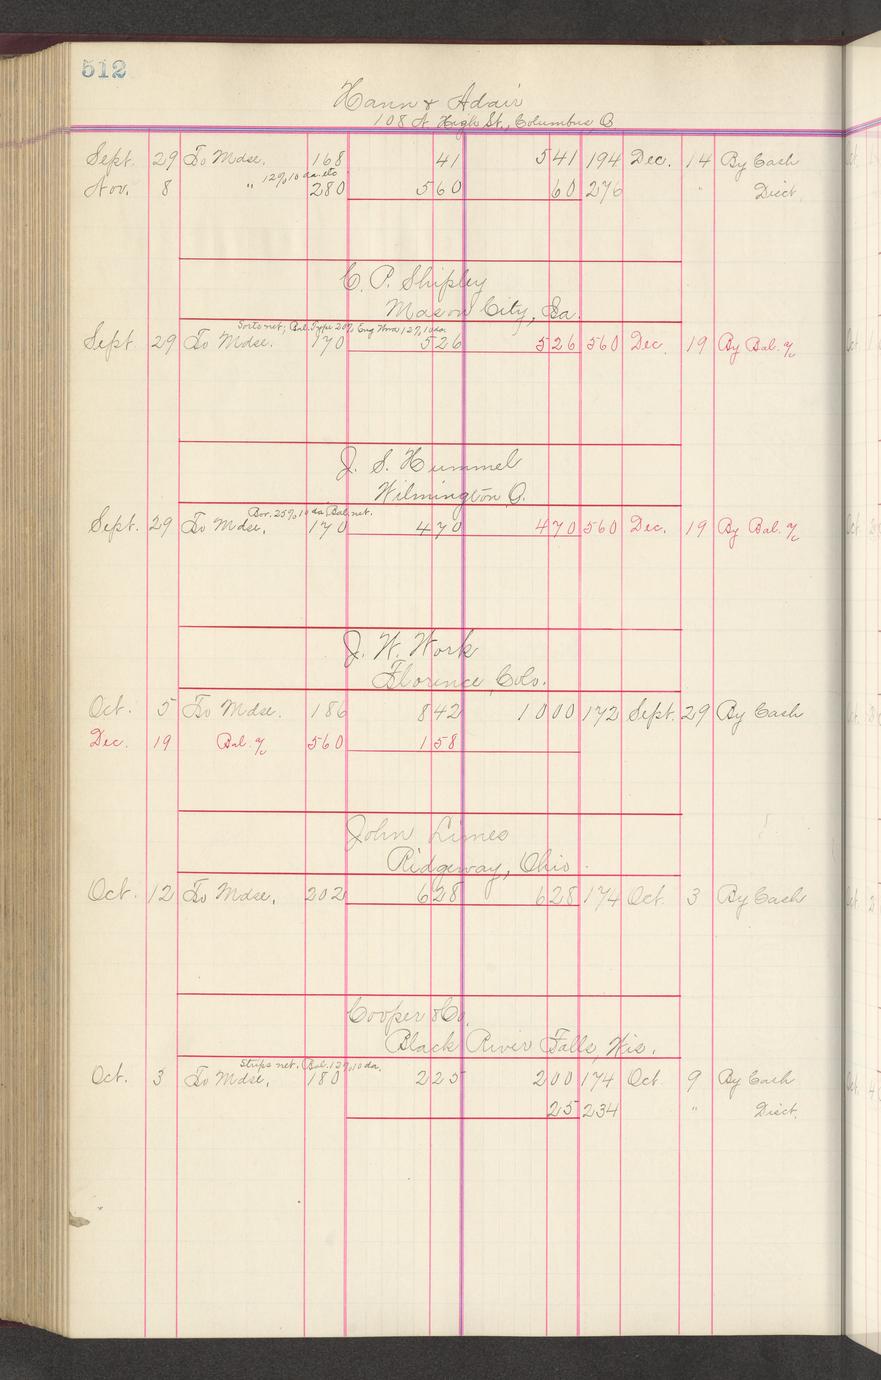 512
Hann & Adair
108 N. High St., Columbus O
Sept. 29 To Mdse. 168 41 541 194 Dec. 14 By Cash
12% 10 da. etc
Nov. 8 " 280 560 60 276 " Disct.
C. P. Shipley
Mason City, Ia.
Sorts net; Bal. Type 20%, Eng Wood 12%, 10 da.
Sept. 29 To Mdse. 170 526 526 560 Dec. 19 By Bal. a/c
J. S. Hummel
Wilmington O.
Bor. 25% 10 da. Bal. net.
Sept. 29 To Mdse. 170 470 470 560 Dec. 19 By Bal. a/c
J. W. Work
Florence, Colo.
Oct. 5 To Mdse. 186 842 1000 172 Sept. 29 By Cash
Dec. 19 Bal. a/c 560 158
John Limes
Ridgeway, Ohio.
Oct. 12 To Mdse. 202 628 628 174 Oct. 3 By Cash
Cooper & Co.
Black River Falls, Wis.
Strips net. Bal. 12% 10 da.
Oct. 3 To Mdse. 180 225 200 174 Oct 9 By Cash
25 234 " Disct.